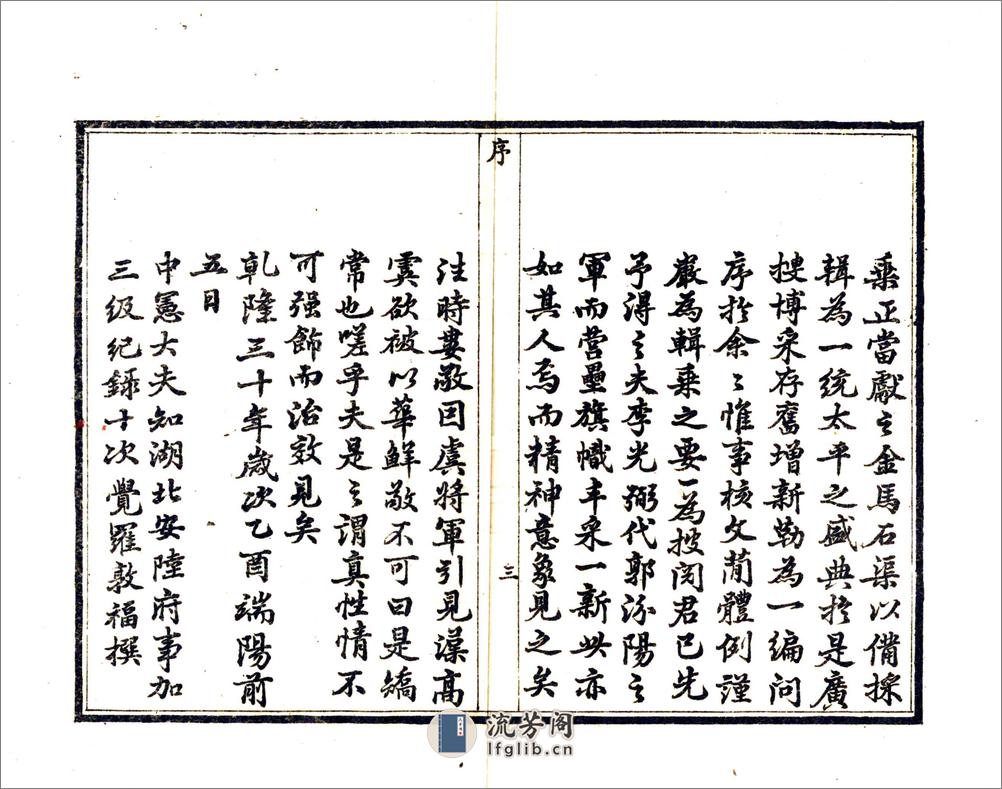 乘正當獻之金馬石渠以備採
輯為一統太平之盛典於是廣
搜博采存舊增新勒為一編問
序於余〻惟事核文簡體例謹
嚴為輯乘之要一為披閱君已先
予得之夫李光弼代郭汾陽之
軍而營壘旗幟丰采一新此亦
如其人焉而精神意象見之矣
序
三
注時婁敬因虞將軍引見漢高
虞欲被以華鮮敬不可曰是矯
常也嗟乎夫是之謂真性情不
可强飾而治效見矣
乾隆三十年歲次乙酉端陽前
五日
中憲大夫知湖北安陸府事加
三級紀錄十次覺羅敦福撰
流芳阁
lfglib.cn